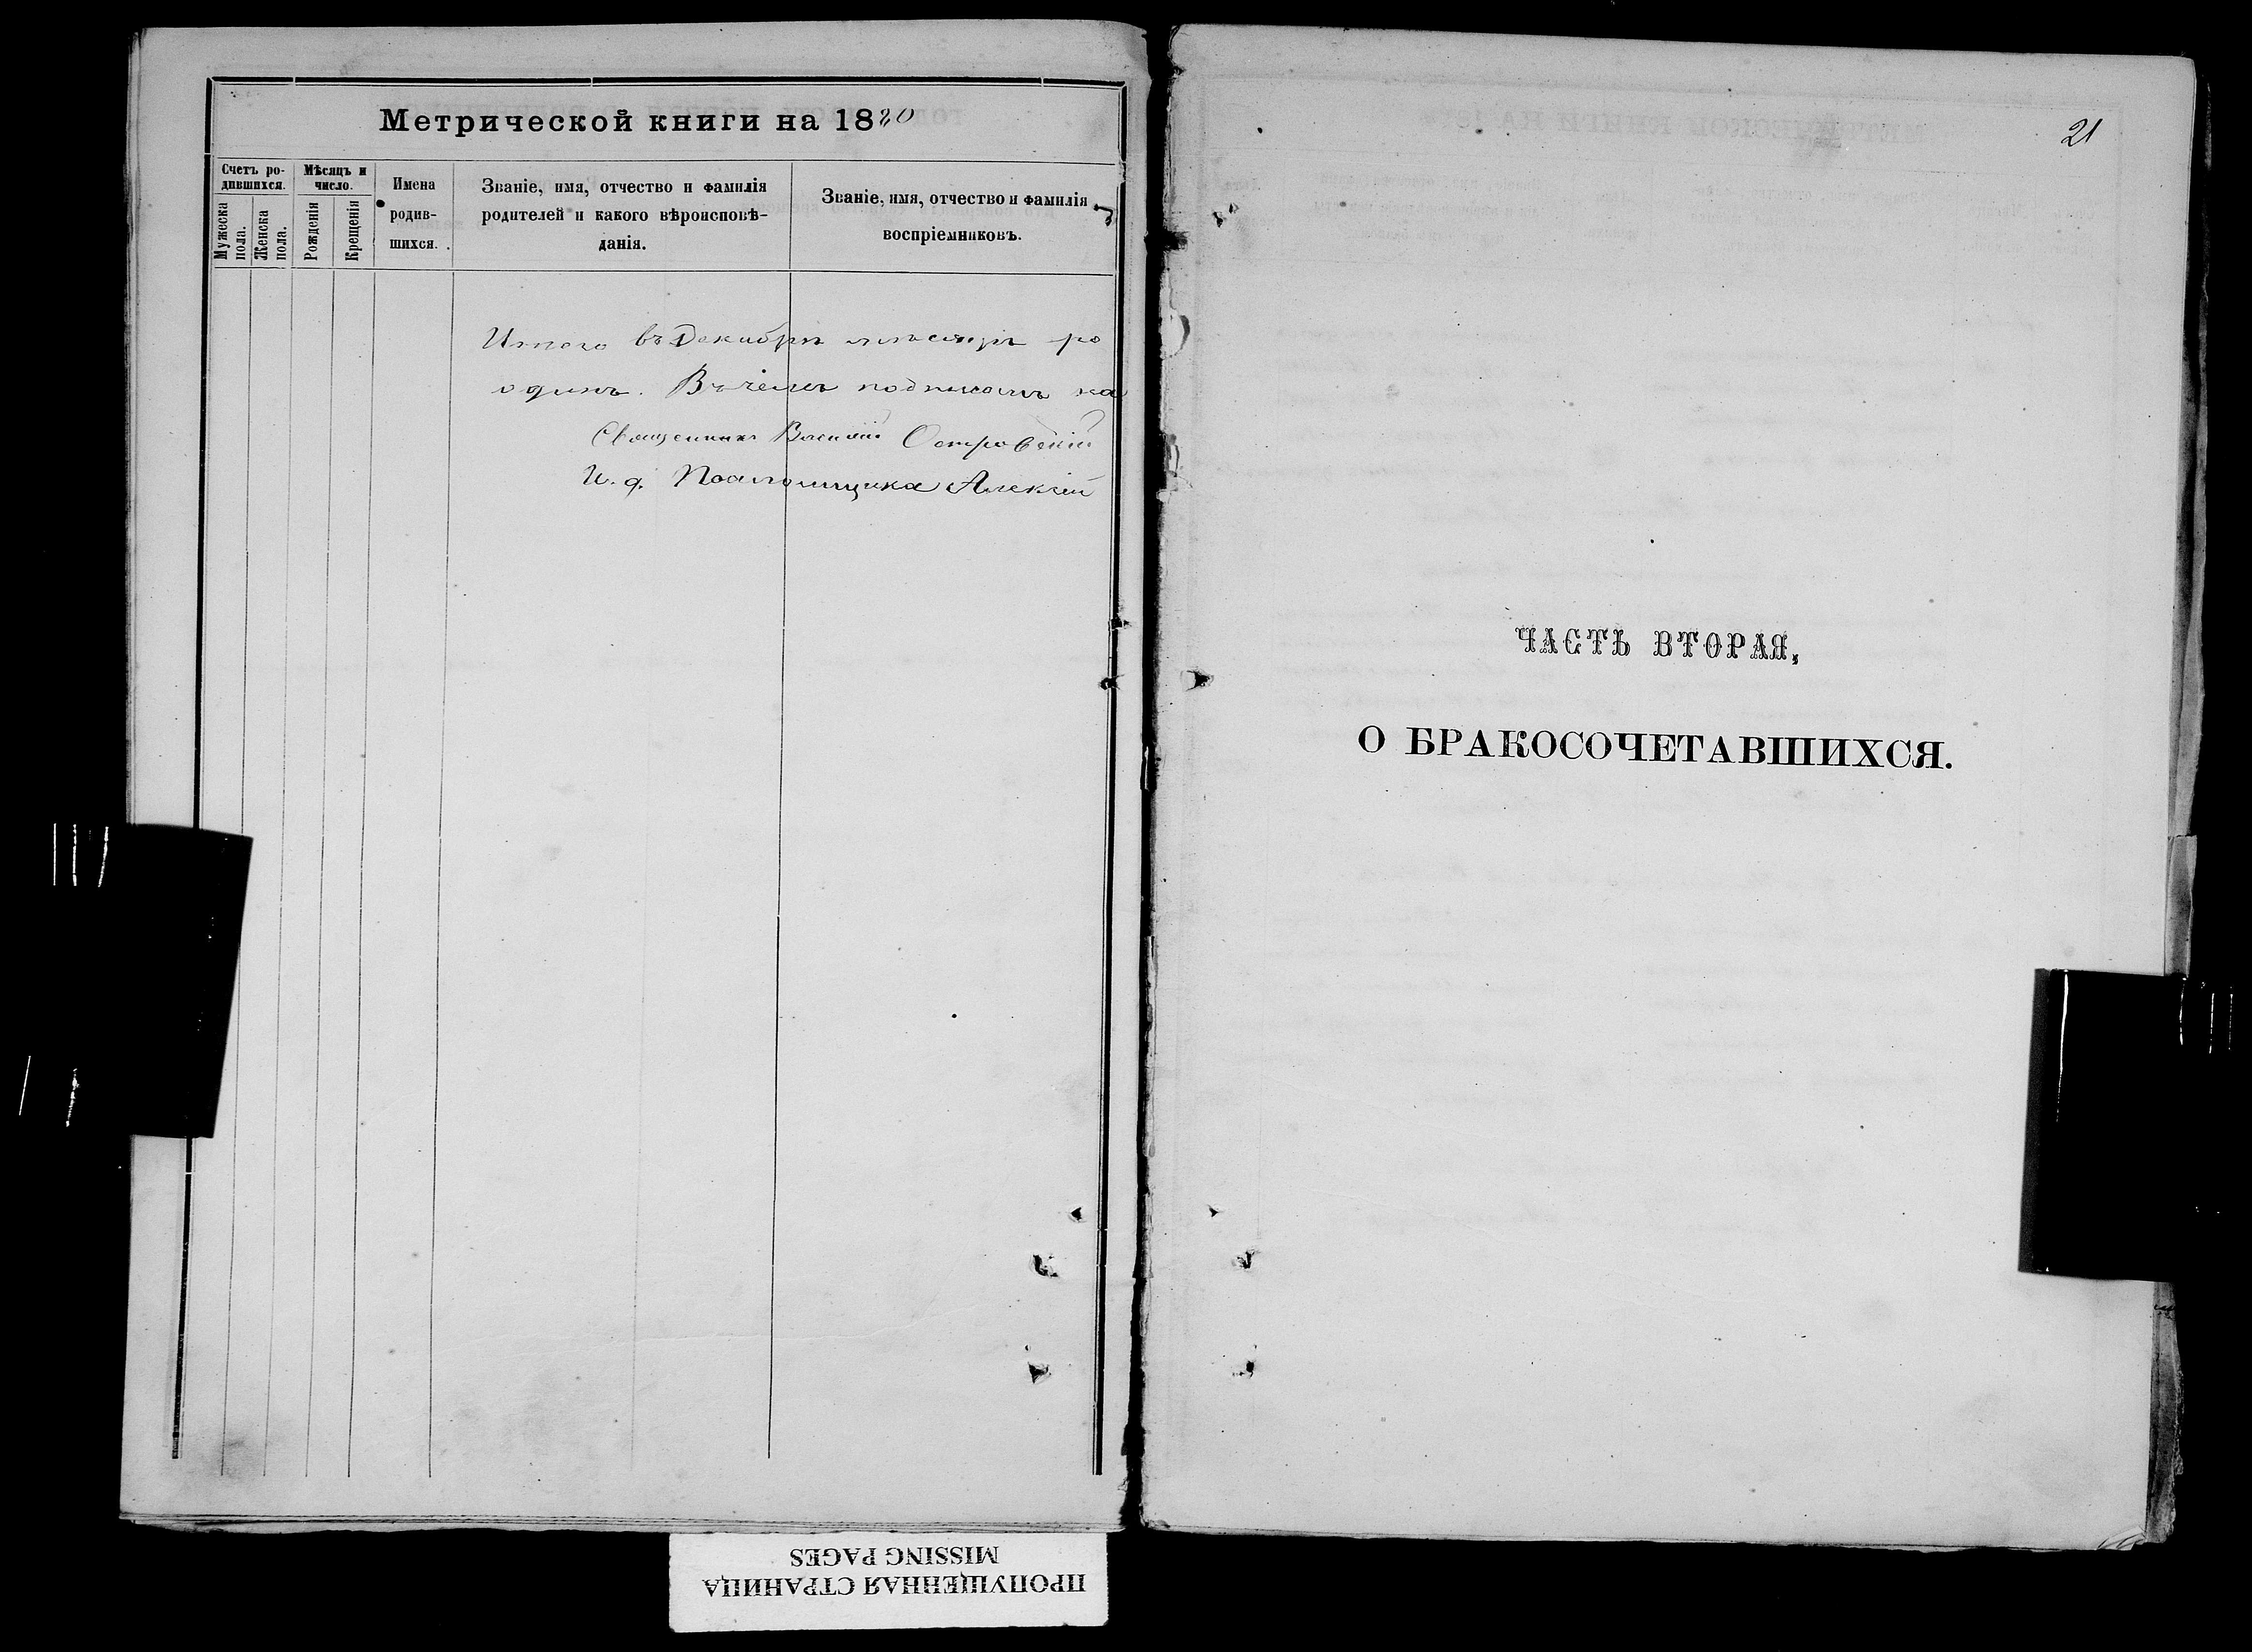 Метрической книги на 1880
Счетъ ро-
дившихся.
Мужеска
пола.
Женска
пола.
Мѣсяцъ и
число.
Рожденія
Крещенія
Имена
родив-
шихся.
Званіе, имя, отчество и фамилія
родителей и какого вѣроисповѣ-
данія.
Званіе, имя, отчество и фамилія
воспріемниковъ.
Итого въ Декабрѣ мѣсяцѣ ро
одинъ. Въ чемъ подписомъ
Священникъ Василій Островскій
И. д. Псаломщика Алексѣй
21
ЧАСТЬ ВТОРАЯ,
О БРАКОСОЧЕТАВШИХСЯ.
ПРОПУЩЕННАЯ СТРАНИЦА
MISSING PAGES